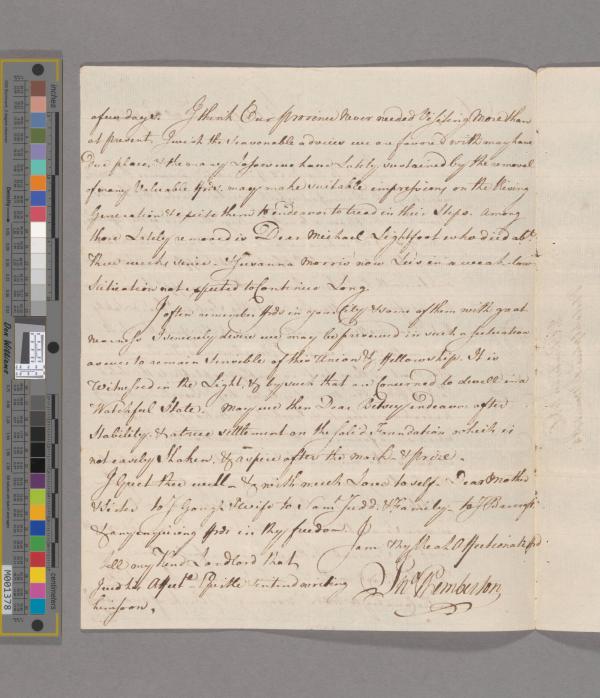 a few days. I think Our province Never needed Visiting More than
at present, I wish the Seasonable advices we are favored with may have
Due place, & the many Losses we have Lately sustained by the removal
of many Valuable ffrds. may make suitable impressions on the Rising
Generation & excite them to endeavor to tread in their Steps. Among
those Lately removed is Dear Michael Lightfoot who died abt.
three weeks since. & Susanna Morris now Lies in a weak low
Situation not expected to Continue Long.
I often remember ffrds in your City & some of them with great
nearness I sincerely desire we may be preserved in such a situation
as ever to remain sensible of this Union & ffellowship. It is
Witnessed in the Light, & by such that are Concerned to dwell in a
Watchful State. May we then Dear Betsey endeavor after
Stability, & a true settlement on the Solid Foundation which is
not easily Shaken, & aspire after the mark & prize.
I Greet thee well & with much Love to self, Dear Mother
& Sister to J Gough & Wife to Saml. Judd & Family to J
& any enquiring ffrds in thy freedom. I
am thy Real Affectionate ffrd
tell my Kind Landlord that
I
him soon.
Jno. Pemberton
inches
centimeters
Don Williams
M001378